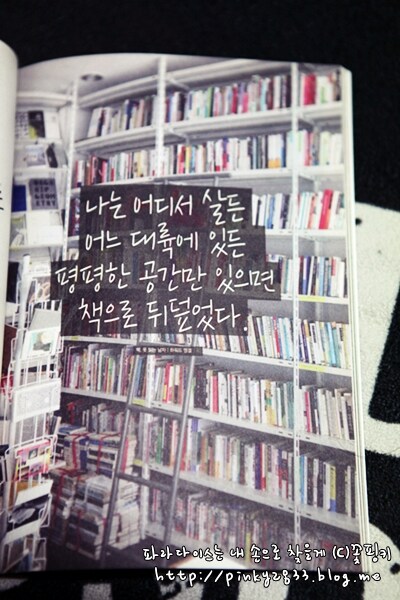 나는 어디서 살든
어느 대륙에 있든
평평한 공간만 있으면
책으로 뒤덮었다.
파라다이스는 내 손으로 찾을게 (C)꽃핑키
http://pinky2833.blog.me